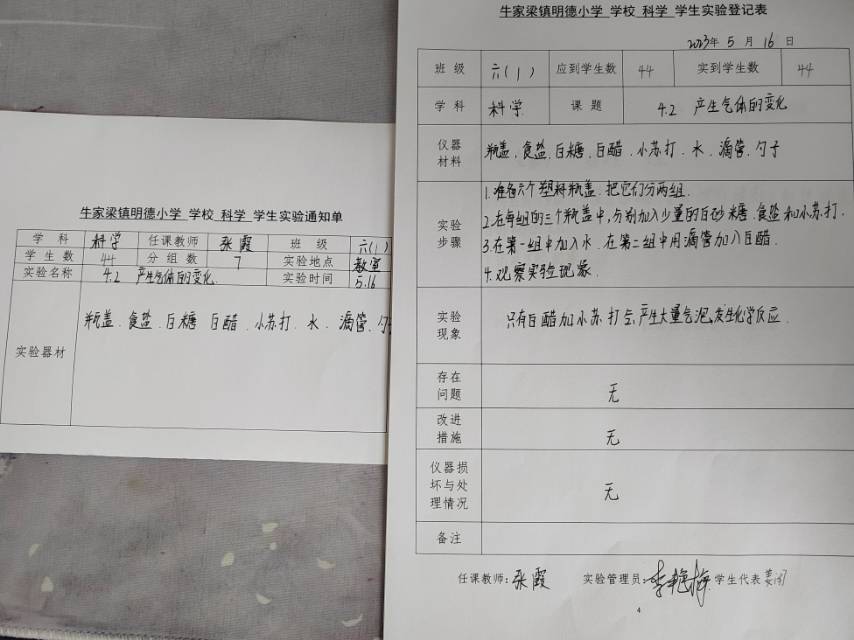 牛家梁镇明德小学 学校 科学 学生实验通知单
学科 科学 任课教师 张霞 班级 六(1)
学生数 44 分组数 7 实验地点 教室
实验名称 4.2 产生气体的变化 实验时间 5.16
实验器材 瓶盖、食盐、白糖 白醋、小苏打、水、滴管、勺
牛家梁镇明德小学 学校 科学 学生实验登记表
2023年 5 月 16 日
班级 六(1) 应到学生数 44 实到学生数 44
学科 科学 课题 4.2 产生气体的变化
仪器材料 瓶盖、食盐、白糖、白醋、小苏打、水、滴管、勺子
实验步骤
1.准备六个塑料瓶盖,把它们分两组.
2.在每组的三个瓶盖中,分别加入少量的白砂糖、食盐和小苏打.
3.在第一组中加入水.在第二组中用滴管加入白醋.
4.观察实验现象.
实验现象 只有白醋加小苏打后,产生大量气泡,发生化学反应.
存在问题 无
改进措施 无
仪器损坏与处理情况 无
备注
任课教师:张霞 实验管理员:李艳梅 学生代表
4